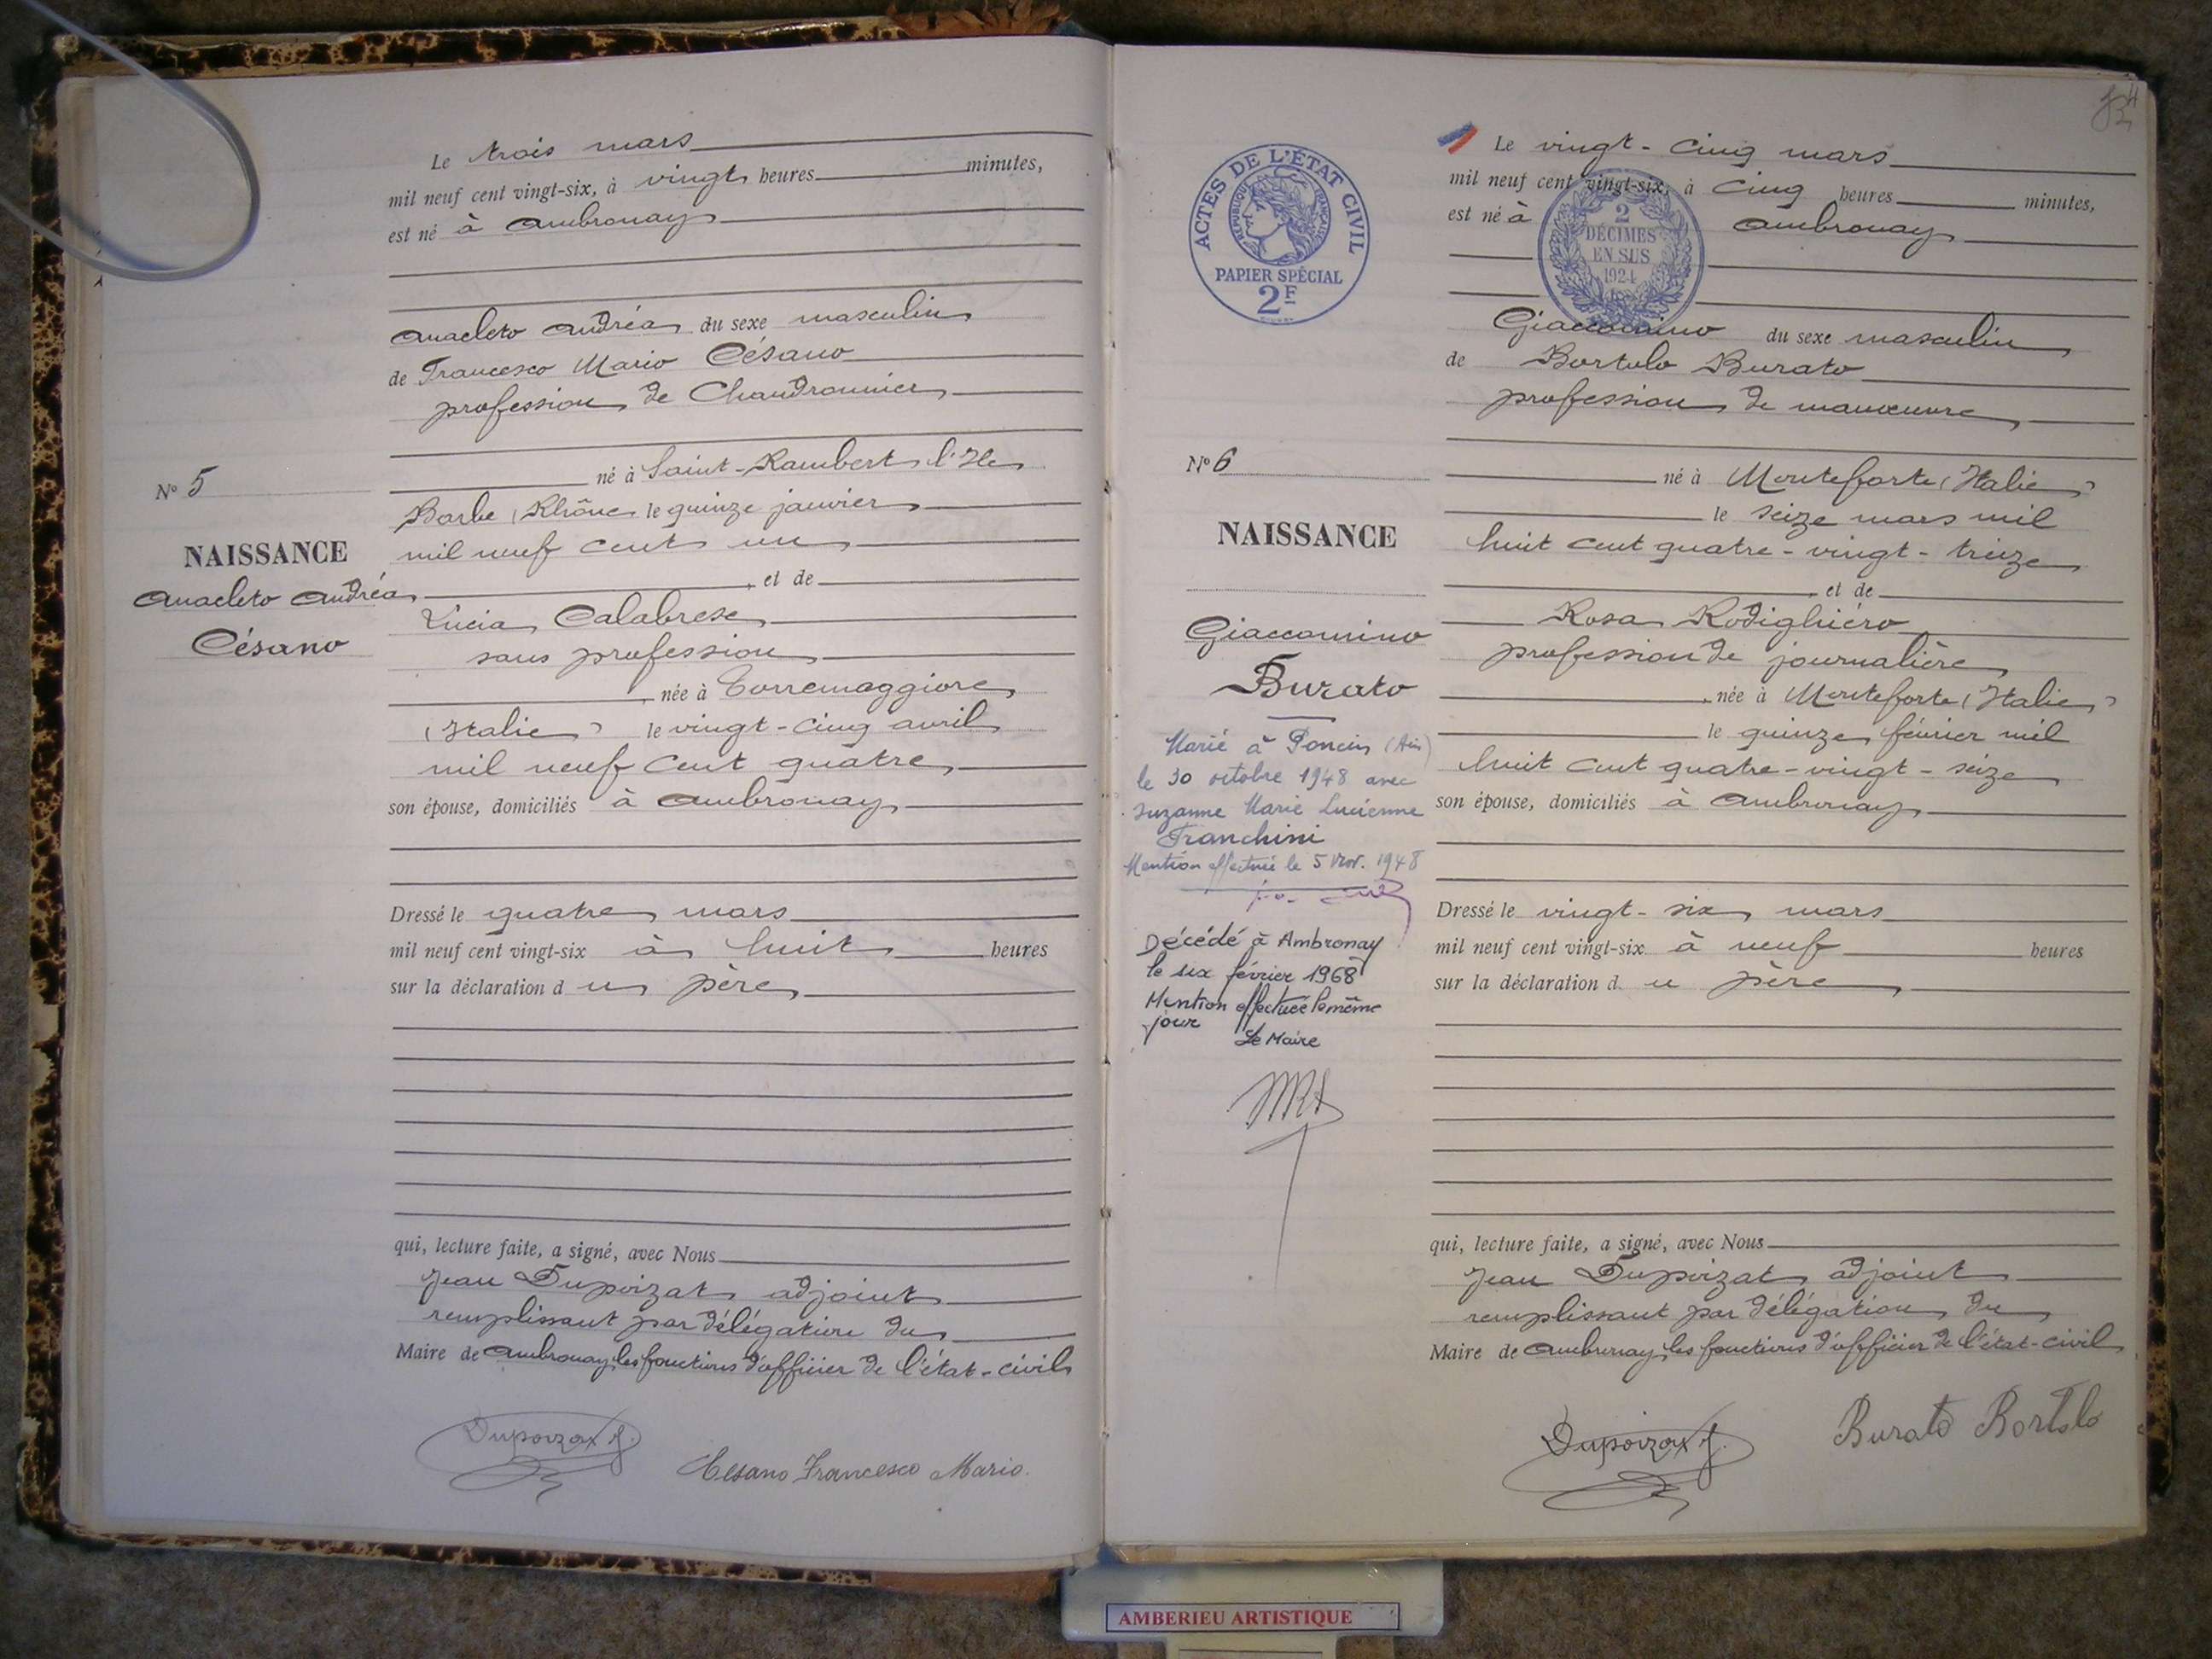 Le trois mars
mil neuf cent vingt-six, à vingt heures minutes,
est né à Ambronay
Anacleto Andréa du sexe masculin
de Francesco Mario Césano
profession de Chaudronnier
né à Saint-Rambert l'Ile
N° 5
Barbe (Rhône le quinze janvier
mil neuf cent un
NAISSANCE
et de
Anacleto Andréa
Césano
Lucia Calabrese
sans profession
née à Torremaggiore
(Italie) le vingt-cinq avril
mil neuf cent quatre
son épouse, domiciliés à Ambronay
Dressé le quatre mars
mil neuf cent vingt-six à huit heures
sur la déclaration du père
qui, lecture faite, a signé, avec Nous
Jean Dupoizat adjoint
remplissant par délégation du
Maire de Ambronay les fonctions d'officier de l'état-civil
Dupoizat J.
Cesano Francesco Mario.
ACTES DE L'ÉTAT CIVIL
RÉPUBLIQUE FRANÇAISE
PAPIER SPÉCIAL
2F
Le vingt-cinq mars
mil neuf cent vingt-six, à cinq heures minutes,
est né à Ambronay
2
DÉCIMES
EN SUS
1924
Giaccomino du sexe masculin
de Bortolo Burato
profession de manœuvre
N° 6
né à Monteforte (Italie)
le seize mars mil
NAISSANCE
huit cent quatre-vingt-treize
et de
Giaccomino
Burato
Rosa Rodighiéro
profession de journalière
née à Monteforte (Italie)
le quinze février mil
huit cent quatre-vingt-seize
son épouse, domiciliés à Ambronay
Marié à Poncin (Ain)
le 30 octobre 1948 avec
Suzanne Marie Lucienne
Franchini
Mention effectuée le 5 Nov. 1948
Décédé à Ambronay
le six février 1968
Mention effectuée le même
jour
Le Maire
Dressé le vingt-six mars
mil neuf cent vingt-six à neuf heures
sur la déclaration du père
qui, lecture faite, a signé, avec Nous
Jean Dupoizat adjoint
remplissant par délégation du
Maire de Ambronay les fonctions d'officier de l'état-civil
Dupoizat J.
Burato Bortolo
AMBERIEU ARTISTIQUE